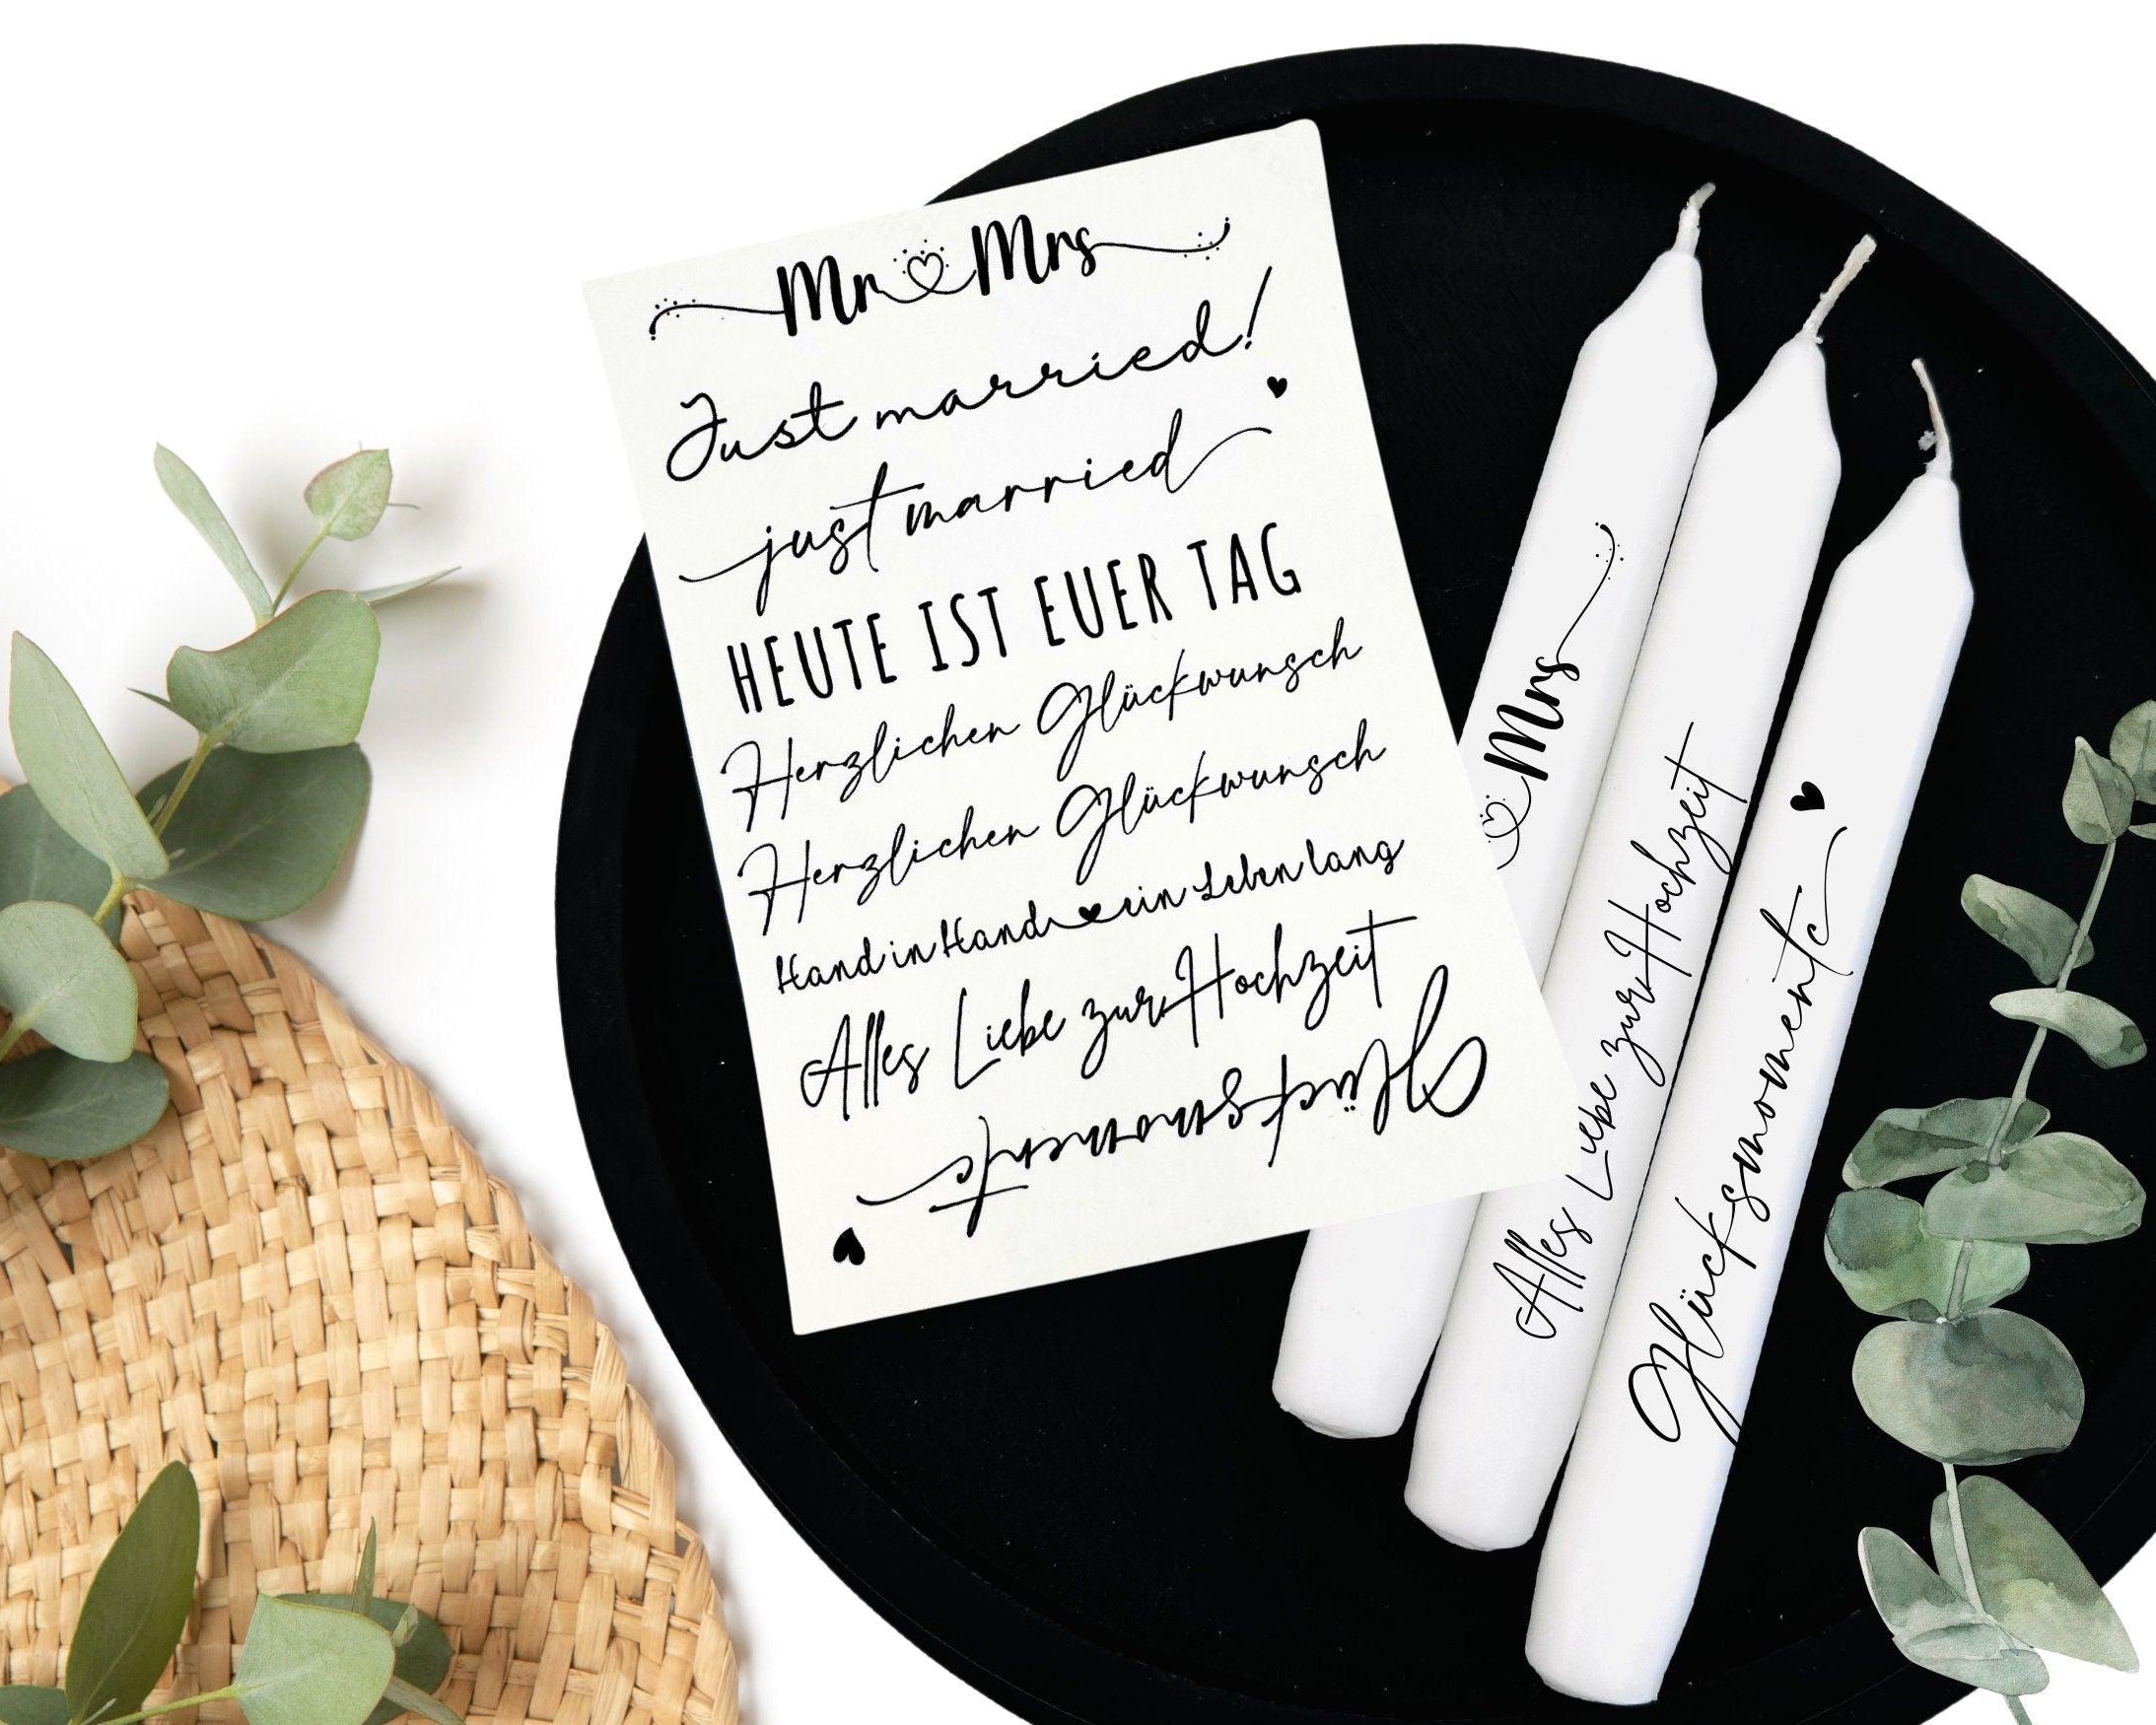 Mr Mrs
Just married!
just married
HEUTE IST EUER TAG
Herzlichen Glückwunsch
Herzlichen Glückwunsch
Hand in Hand ein Leben lang
Alles Liebe zur Hochzeit
Glücksmomente
Mrs
Alles Liebe zur Hochzeit
Glücksmomente